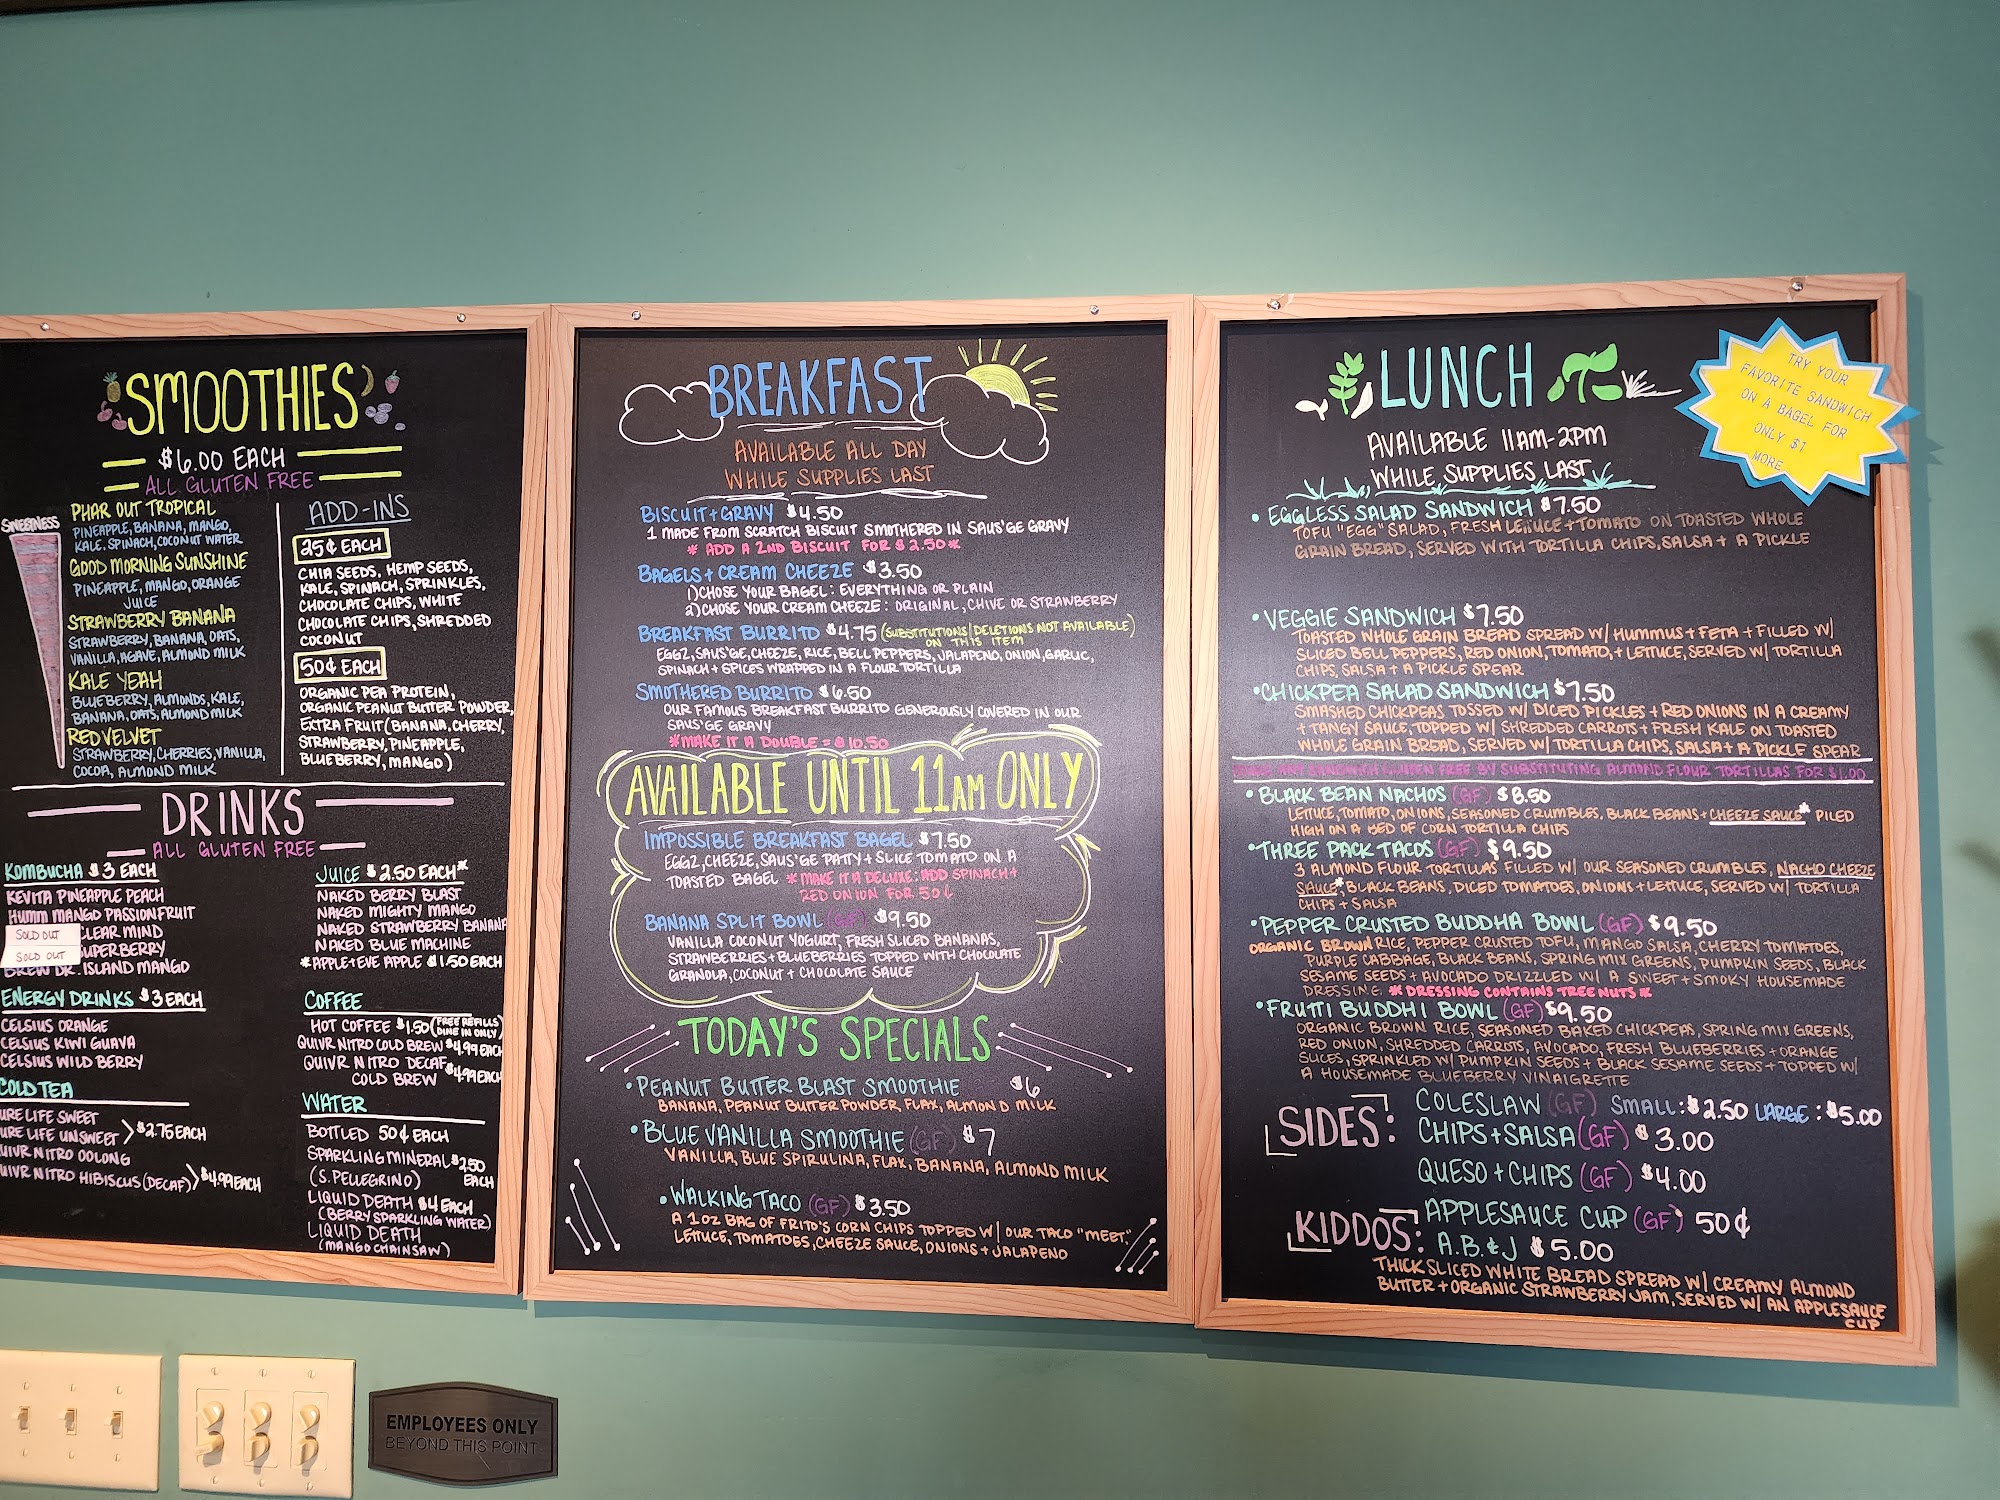 SMOOTHIES
$6.00 EACH
ALL GLUTEN FREE
SWEETNESS
PHAR OUT TROPICAL
PINEAPPLE, BANANA, MANGO,
KALE, SPINACH, COCONUT WATER
GOOD MORNING SUNSHINE
PINEAPPLE, MANGO, ORANGE
JUICE
STRAWBERRY BANANA
STRAWBERRY, BANANA, OATS,
VANILLA, AGAVE, ALMOND MILK
KALE YEAH
BLUEBERRY, ALMONDS, KALE,
BANANA, OATS, ALMOND MILK
RED VELVET
STRAWBERRY, CHERRIES, VANILLA,
COCOA, ALMOND MILK
ADD-INS
25¢ EACH
CHIA SEEDS, HEMP SEEDS,
KALE, SPINACH, SPRINKLES,
CHOCOLATE CHIPS, WHITE
CHOCOLATE CHIPS, SHREDDED
COCONUT
50¢ EACH
ORGANIC PEA PROTEIN,
ORGANIC PEANUT BUTTER POWDER,
EXTRA FRUIT (BANANA, CHERRY,
STRAWBERRY, PINEAPPLE,
BLUEBERRY, MANGO)
DRINKS
ALL GLUTEN FREE
KOMBUCHA $3 EACH
KEVITA PINEAPPLE PEACH
HUMM MANGO PASSIONFRUIT
SOLD OUT CLEAR MIND
SOLD OUT UPERBERRY
BREW DR. ISLAND MANGO
ENERGY DRINKS $3 EACH
CELSIUS ORANGE
CELSIUS KIWI GUAVA
CELSIUS WILD BERRY
COLD TEA
URE LIFE SWEET
URE LIFE UNSWEET > $2.75 EACH
UIVR NITRO OOLONG
UIVR NITRO HIBISCUS (DECAF) > $4.99 EACH
JUICE $2.50 EACH*
NAKED BERRY BLAST
NAKED MIGHTY MANGO
NAKED STRAWBERRY BANANA
NAKED BLUE MACHINE
*APPLE+EVE APPLE $1.50 EACH
COFFEE
HOT COFFEE $1.50 (FREE REFILLS DINE IN ONLY)
QUIVR NITRO COLD BREW $4.99 EACH
QUIVR NITRO DECAF
COLD BREW $4.99 EACH
WATER
BOTTLED 50¢ EACH
SPARKLING MINERAL $2.50
(S. PELLEGRINO) EACH
LIQUID DEATH $4 EACH
(BERRY SPARKLING WATER)
LIQUID DEATH
(MANGO CHAINSAW)
BREAKFAST
AVAILABLE ALL DAY
WHILE SUPPLIES LAST
BISCUIT + GRAVY $4.50
1 MADE FROM SCRATCH BISCUIT SMOTHERED IN SAUS'GE GRAVY
* ADD A 2ND BISCUIT FOR $2.50 *
BAGELS + CREAM CHEEZE $3.50
1) CHOSE YOUR BAGEL: EVERYTHING OR PLAIN
2) CHOSE YOUR CREAM CHEEZE: ORIGINAL, CHIVE OR STRAWBERRY
BREAKFAST BURRITO $4.75 (SUBSTITUTIONS/DELETIONS NOT AVAILABLE)
ON THIS ITEM
EGGZ, SAUS'GE, CHEEZE, RICE, BELL PEPPERS, JALAPENO, ONION, GARLIC,
SPINACH + SPICES WRAPPED IN A FLOUR TORTILLA
SMOTHERED BURRITO $6.50
OUR FAMOUS BREAKFAST BURRITO GENEROUSLY COVERED IN OUR
SAUS'GE GRAVY
*MAKE IT A DOUBLE = $10.50
AVAILABLE UNTIL 11AM ONLY
IMPOSSIBLE BREAKFAST BAGEL $7.50
EGGZ, CHEEZE, SAUS'GE PATTY + SLICE TOMATO ON A
TOASTED BAGEL *MAKE IT A DELUXE: ADD SPINACH +
RED ONION FOR 50¢
BANANA SPLIT BOWL (GF) $9.50
VANILLA COCONUT YOGURT, FRESH SLICED BANANAS,
STRAWBERRIES + BLUEBERRIES TOPPED WITH CHOCOLATE
GRANOLA, COCONUT + CHOCOLATE SAUCE
TODAY'S SPECIALS
• PEANUT BUTTER BLAST SMOOTHIE $6
BANANA, PEANUT BUTTER POWDER, FLAX, ALMOND MILK
• BLUE VANILLA SMOOTHIE (GF) $7
VANILLA, BLUE SPIRULINA, FLAX, BANANA, ALMOND MILK
• WALKING TACO (GF) $3.50
A 1 OZ BAG OF FRITO'S CORN CHIPS TOPPED W/ OUR TACO "MEET,"
LETTUCE, TOMATOES, CHEEZE SAUCE, ONIONS + JALAPENO
LUNCH
AVAILABLE 11AM-2PM
WHILE SUPPLIES LAST
TRY YOUR
FAVORITE SANDWICH
ON A BAGEL FOR
ONLY $1
MORE
• EGGLESS SALAD SANDWICH $7.50
TOFU "EGG" SALAD, FRESH LETTUCE + TOMATO ON TOASTED WHOLE
GRAIN BREAD, SERVED WITH TORTILLA CHIPS, SALSA + A PICKLE
• VEGGIE SANDWICH $7.50
TOASTED WHOLE GRAIN BREAD SPREAD W/ HUMMUS + FETA + FILLED W/
SLICED BELL PEPPERS, RED ONION, TOMATO, + LETTUCE, SERVED W/ TORTILLA
CHIPS, SALSA + A PICKLE SPEAR
• CHICKPEA SALAD SANDWICH $7.50
SMASHED CHICKPEAS TOSSED W/ DICED PICKLES + RED ONIONS IN A CREAMY
+ TANGY SAUCE, TOPPED W/ SHREDDED CARROTS + FRESH KALE ON TOASTED
WHOLE GRAIN BREAD, SERVED W/ TORTILLA CHIPS, SALSA + A PICKLE SPEAR
MAKE ANY SANDWICH GLUTEN FREE BY SUBSTITUTING ALMOND FLOUR TORTILLAS FOR $1.00
• BLACK BEAN NACHOS (GF) $8.50
LETTUCE, TOMATO, ONIONS, SEASONED CRUMBLES, BLACK BEANS + CHEEZE SAUCE* PILED
HIGH ON A BED OF CORN TORTILLA CHIPS
• THREE PACK TACOS (GF) $9.50
3 ALMOND FLOUR TORTILLAS FILLED W/ OUR SEASONED CRUMBLES, NACHO CHEEZE
SAUCE*, BLACK BEANS, DICED TOMATOES, ONIONS + LETTUCE, SERVED W/ TORTILLA
CHIPS + SALSA
• PEPPER CRUSTED BUDDHA BOWL (GF) $9.50
ORGANIC BROWN RICE, PEPPER CRUSTED TOFU, MANGO SALSA, CHERRY TOMATOES,
PURPLE CABBAGE, BLACK BEANS, SPRING MIX GREENS, PUMPKIN SEEDS, BLACK
SESAME SEEDS + AVOCADO DRIZZLED W/ A SWEET + SMOKY HOUSEMADE
DRESSING. * DRESSING CONTAINS TREE NUTS *
• FRUTTI BUDDHI BOWL (GF) $9.50
ORGANIC BROWN RICE, SEASONED BAKED CHICKPEAS, SPRING MIX GREENS,
RED ONION, SHREDDED CARROTS, AVOCADO, FRESH BLUEBERRIES + ORANGE
SLICES, SPRINKLED W/ PUMPKIN SEEDS + BLACK SESAME SEEDS + TOPPED W/
A HOUSEMADE BLUEBERRY VINAIGRETTE
SIDES: COLESLAW (GF) SMALL: $2.50 LARGE: $5.00
CHIPS + SALSA (GF) $3.00
QUESO + CHIPS (GF) $4.00
KIDDOS: APPLESAUCE CUP (GF) 50¢
A.B. & J $5.00
THICK SLICED WHITE BREAD SPREAD W/ CREAMY ALMOND
BUTTER + ORGANIC STRAWBERRY JAM, SERVED W/ AN APPLESAUCE
CUP
EMPLOYEES ONLY
BEYOND THIS POINT